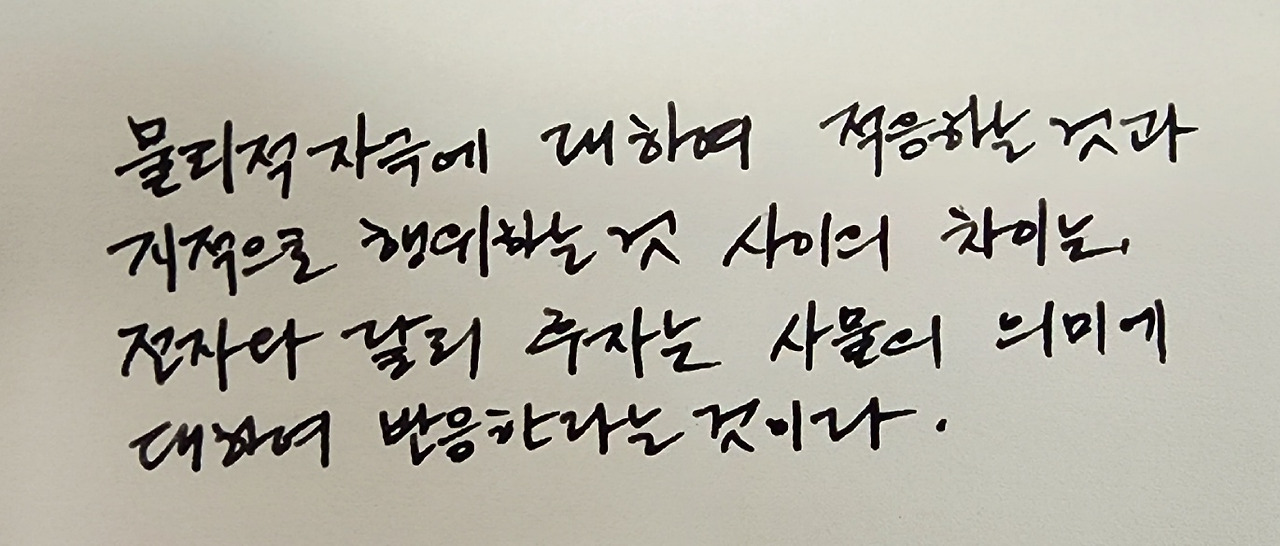 물리적 자극에 대하여 적응하는 것과
지적으로 행위하는 것 사이의 차이는,
전자와 달리 후자는 사물의 의미에
대하여 반응한다는 것이다.